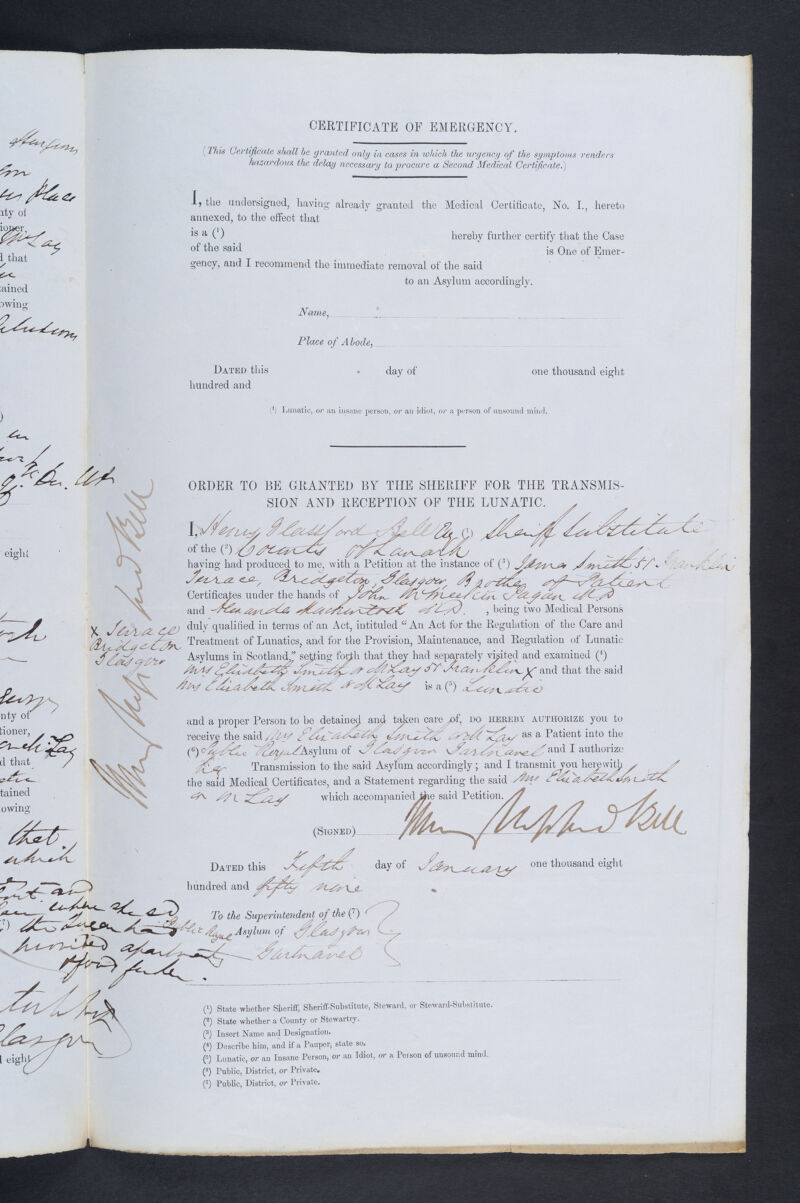 CERTIFICATE OF EMERGENCY.
(This Certificate shall be granted only in cases in which the urgency of the symptoms renders
hazardous the delay necessary to procure a Second Medical Certificate.)
I, the undersigned, having already granted the Medical Certificate, No. I., hereto
annexed, to the effect that
is a (¹) hereby further certify that the Case
of the said is One of Emer-
gency, and I recommend the immediate removal of the said
to an Asylum accordingly.
Name,
Place of Abode,
DATED this day of one thousand eight
hundred and
(¹) Lunatic, or an insane person, or an idiot, or a person of unsound mind.
ORDER TO BE GRANTED BY THE SHERIFF FOR THE TRANSMIS-
SION AND RECEPTION OF THE LUNATIC.
I, Henry Glassford Bell Esq (¹) Sheriff Substitute
of the (²) County of Lanark
having had produced to me, with a Petition at the instance of (³) James Smith 51 Franklin
Terrace, Bridgeton, Glasgow, Brother of Patient
Certificates under the hands of John Fagan M.D
and Alexander Mackintosh M.D. , being two Medical Persons
duly qualified in terms of an Act, intituled “An Act for the Regulation of the Care and
Treatment of Lunatics, and for the Provision, Maintenance, and Regulation of Lunatic
Asylums in Scotland,” setting forth that they had separately visited and examined (⁴)
Mrs Elisabeth Smith or McLay 51 Franklin x and that the said
x Terrace
Bridgeton
Glasgow
Mrs Elisabeth Smith or McLay is a (⁵) Lunatic
and a proper Person to be detained and taken care of, DO HEREBY AUTHORIZE you to
receive the said Mrs Elisabeth Smith or McLay as a Patient into the
(⁶) Public Royal Asylum of Glasgow Gartnavel and I authorize
her Transmission to the said Asylum accordingly; and I transmit you herewith
the said Medical Certificates, and a Statement regarding the said Mrs Elisabeth Smith
or McLay which accompanied the said Petition.
(SIGNED) Bell
DATED this Fifth day of January one thousand eight
hundred and fifty nine
To the Superintendent of the (⁷)
Public Royal Asylum of Glasgow
Gartnavel
(¹) State whether Sheriff, Sheriff-Substitute, Steward, or Steward-Substitute.
(²) State whether a County or Stewartry.
(³) Insert Name and Designation.
(⁴) Describe him, and if a Pauper, state so.
(⁵) Lunatic, or an Insane Person, or an Idiot, or a Person of unsound mind.
(⁶) Public, District, or Private.
(⁷) Public, District, or Private.